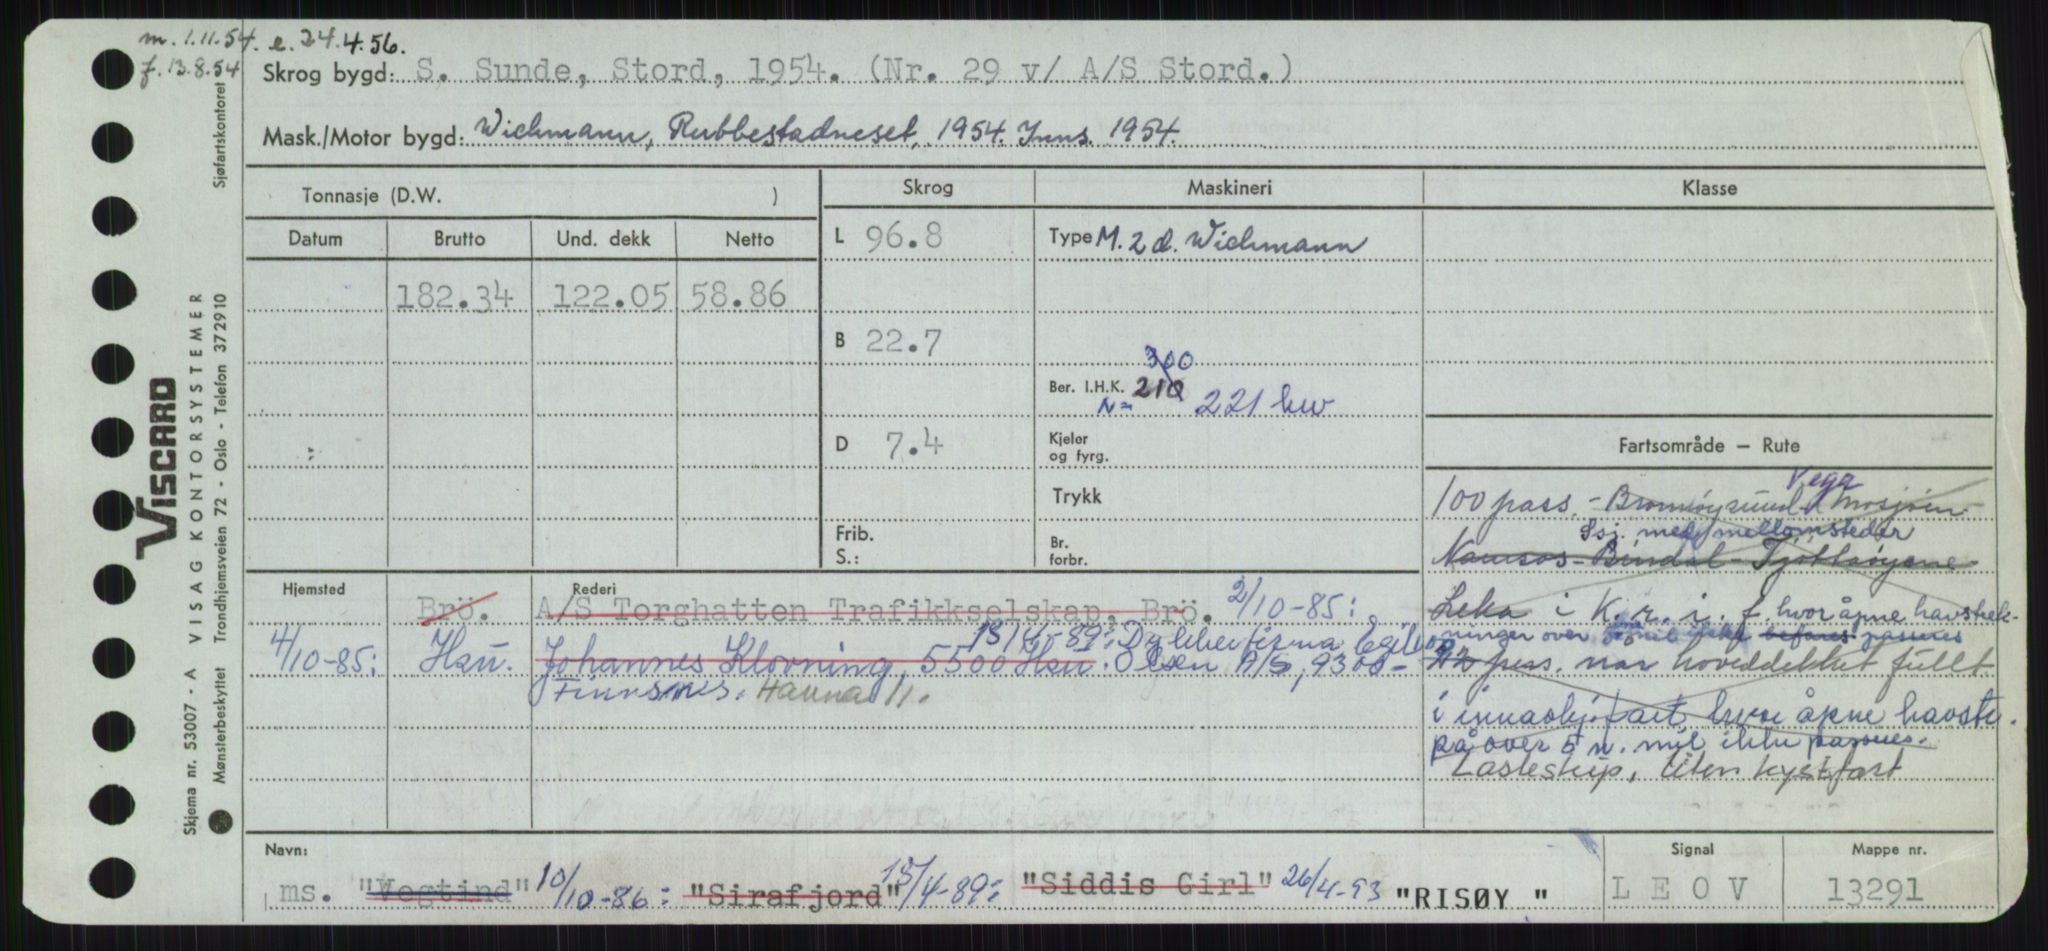 m. 1.11.54. e. 24.4.56.
f. 13.8.54
Skrog bygd: S. Sunde, Stord, 1954. (Nr. 29 v/ A/S Stord.)
Mask./Motor bygd: Wichmann, Rubbestadneset, 1954. Inns. 1954.
Tonnasje (D.W. )
Skrog
Maskineri
Klasse
Datum Brutto Und. dekk Netto
L 96.8
Type M. 2 d. Wichmann
182.34 122.05 58.86
B 22.7
300
Ber. I.H.K. 210
N= 221 kw
D 7.4
Kjeler
og fyrg.
Trykk
Frib.
S.:
Br.
forbr.
Fartsområde – Rute
Vega
100 pass. - Brønnøysund - Mosjøen
med mellomsteder
Namsos - Bindal - Tjøttaøyene
Leka i K. r. i. f. hvor åpne havstrek-
ninger over mil ikke befares passeres
pass. når hoveddekket fullt
i innaskj. fart hvor åpne havstr.
på over 5 n. mil ikke passeres.
Lasteskip, liten kystfart
Hjemsted
Rederi
Brö. A/S Torghatten Trafikkselskap, Brö. 2/10-85:
13/4-89: Dykkerfirma Egil
4/10-85: Hau. Johannes Klovning, 5500 Hau. Olsen A/S, 9300-
Finnsnes. Hanna 11.
Navn:
ms. "Vegtind" 10/10-86: "Sirafjord" 13/4-89: "Siddis Girl" 26/4-93 "RISØY "
Signal
LEOV
Mappe nr.
13291
VISCARD
VISAG KONTORSYSTEMER
Skjema nr. 53007 - A
Mønsterbeskyttet Trondhjemsveien 72 - Oslo - Telefon 372910
Sjøfartskontoret